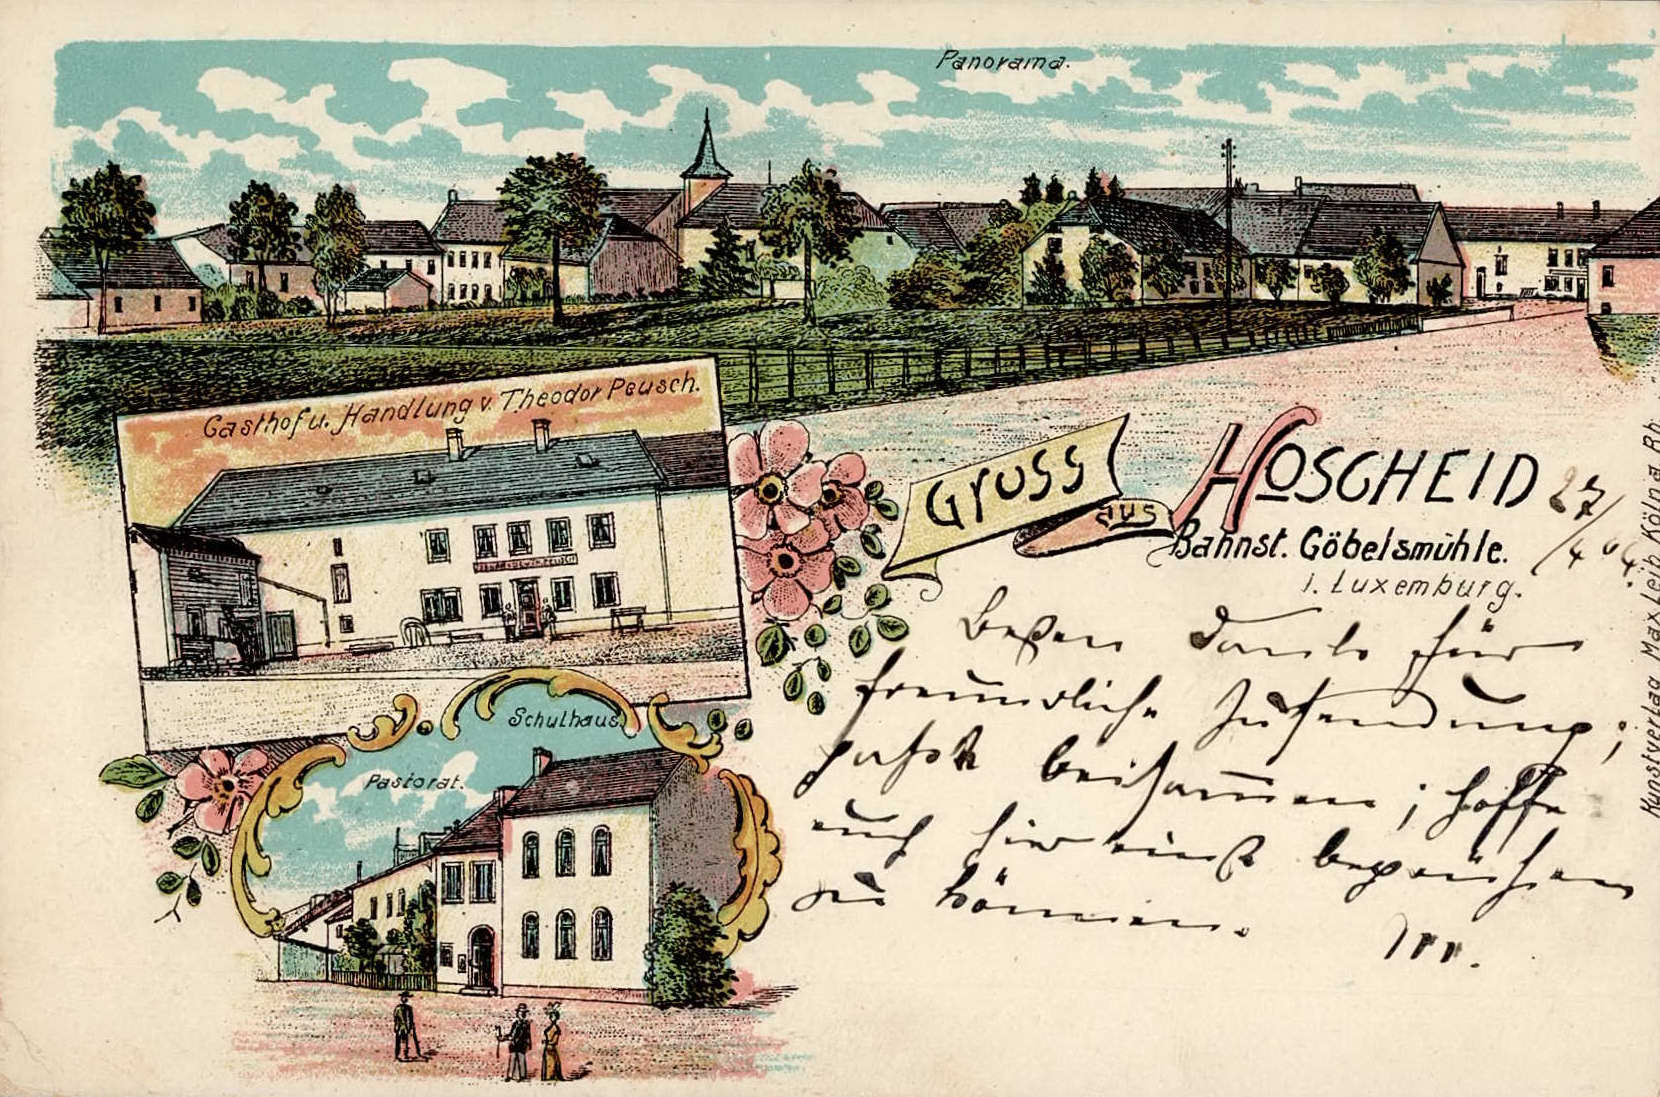 Panorama.
Gasthof u. Handlung v. Theodor Peusch.
Gruss
aus
HOSCHEID
Bahnst. Göbelsmühle.
i. Luxemburg.
27/4 04.
Besten Dank für
freundliche Zusendung;
beisammen; hoffe
auch hier einst begrüßen
zu können.
Schulhaus.
Pastorat.
Kunstverlag Max Leib Köln a Rh.